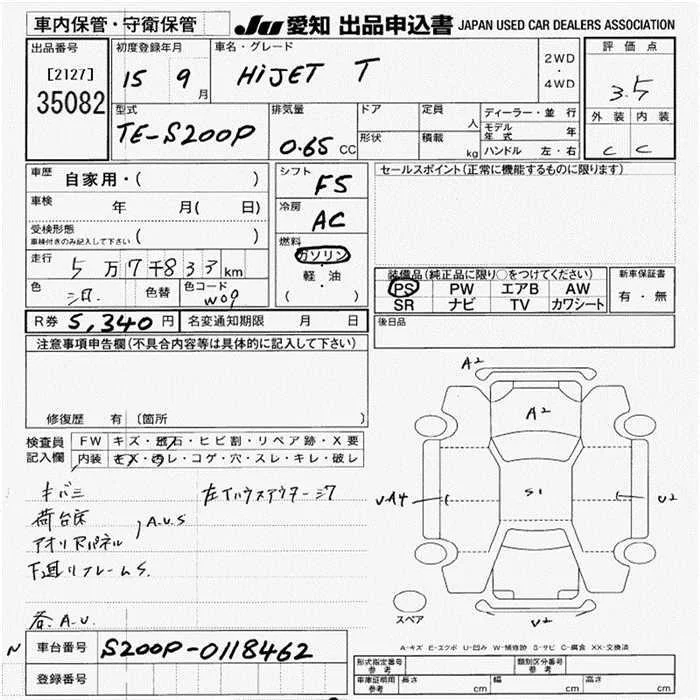 車内保管・守衛保管
JU 愛知 出品申込書 JAPAN USED CAR DEALERS ASSOCIATION
出品番号
[2127]
35082
初度登録年月
15 9 月
車名・グレード
HiJET T
2WD
・
4WD
評価点
3.5
外装 内装
C C
型式
TE-S200P
排気量
0.65 CC
ドア
形状
定員
人
積載
kg
ディーラー・並行
モデル年式 年
ハンドル 左・右
車歴
自家用・( )
車検
年 月( 日)
受検形態
車検付きのみ記入して下さい ( )
走行
5万7千833km
色
シロ.
色替
色コード
W09
シフト
F5
冷房
AC
燃料
ガソリン
軽・油
( )
セールスポイント(正常に機能するものに限ります)
装備品(純正品に限り○をつけてください)
PS PW エアB AW
SR ナビ TV カワシート
新車保証書
有・無
後日品
R券 5,340円
名変通知期限 月 日
注意事項申告欄(不具合内容等は具体的に記入して下さい)
修復歴 有 〔箇所 〕
検査員
記入欄
FW キズ・飛石・ヒビ割・リペア跡・X要
内装 キズ・ヨゴレ・コゲ・穴・スレ・キレ・破レ
キバミ
荷台床
アオリ パネル
, A.U.S
下廻りフレームS.
各. A.U.
A2
A2
S1
UA4
U2
U2
スペア
A-キズ E-エクボ U-凹み W-補修跡 S-サビ C-腐食 XX-交換済
N
車台番号 S200P-0118462
登録番号
形式指定番号
参考
類別区分番号
参考
車庫証明用
参考
長さ cm
幅 cm
高さ cm